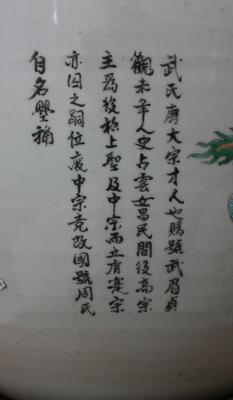 武氏唐太宗才人也賜號武眉貞
觀末年人史占雲女昌民間後高宗
主為後於上聖及中宗而立睿宗
亦因之嗣位廢中宗竟改國號周氏
自名曌稱